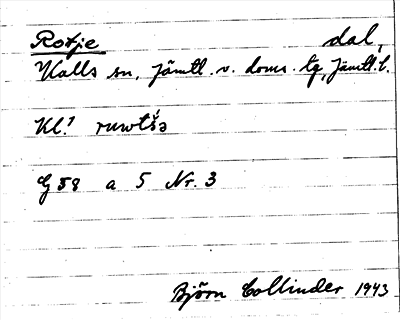 Rotje dal,
Kalls sn, Jämtl. v. doms. tg, Jämtl. l.
Kl.¹ ruwtš́ə
G 58 a 5 Nr. 3
Björn Collinder 1943